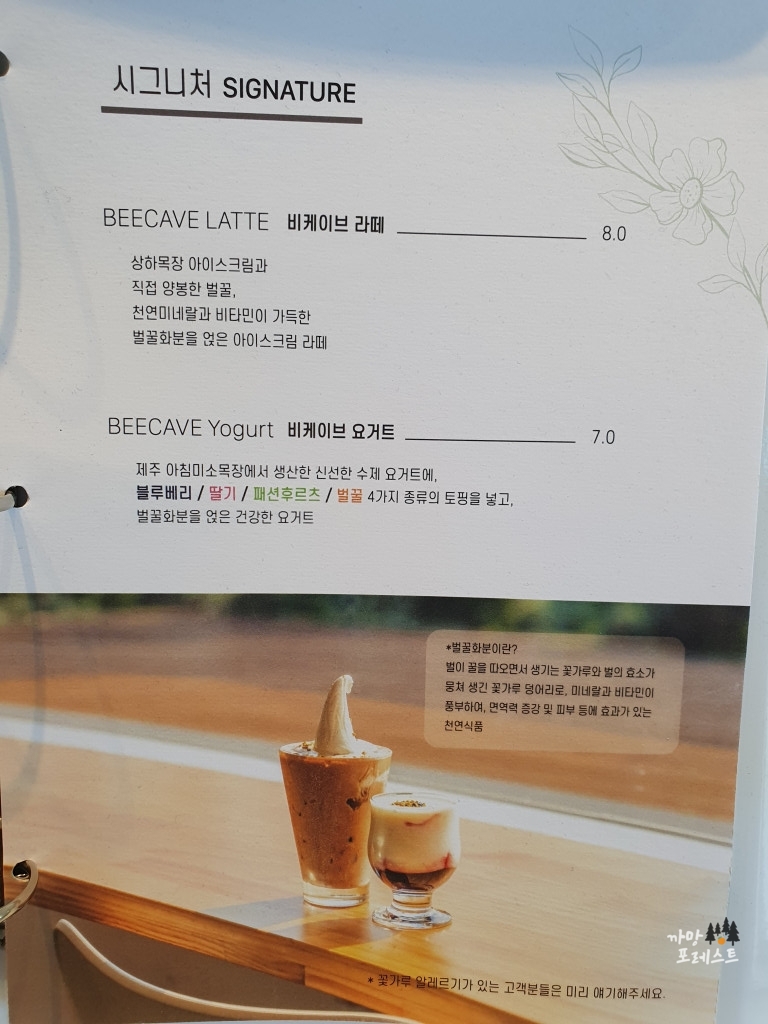 시그니처 SIGNATURE
BEECAVE LATTE 비케이브 라떼 8.0
상하목장 아이스크림과
직접 양봉한 벌꿀,
천연미네랄과 비타민이 가득한
벌꿀화분을 얹은 아이스크림 라떼
BEECAVE Yogurt 비케이브 요거트 7.0
제주 아침미소목장에서 생산한 신선한 수제 요거트에,
블루베리 / 딸기 / 패션후르츠 / 벌꿀 4가지 종류의 토핑을 넣고,
벌꿀화분을 얹은 건강한 요거트
*벌꿀화분이란?
벌이 꿀을 따오면서 생기는 꽃가루와 벌의 효소가
뭉쳐 생긴 꽃가루 덩어리로, 미네랄과 비타민이
풍부하여, 면역력 증강 및 피부 등에 효과가 있는
천연식품
까망
포레스트
* 꽃가루 알레르기가 있는 고객분들은 미리 얘기해주세요.